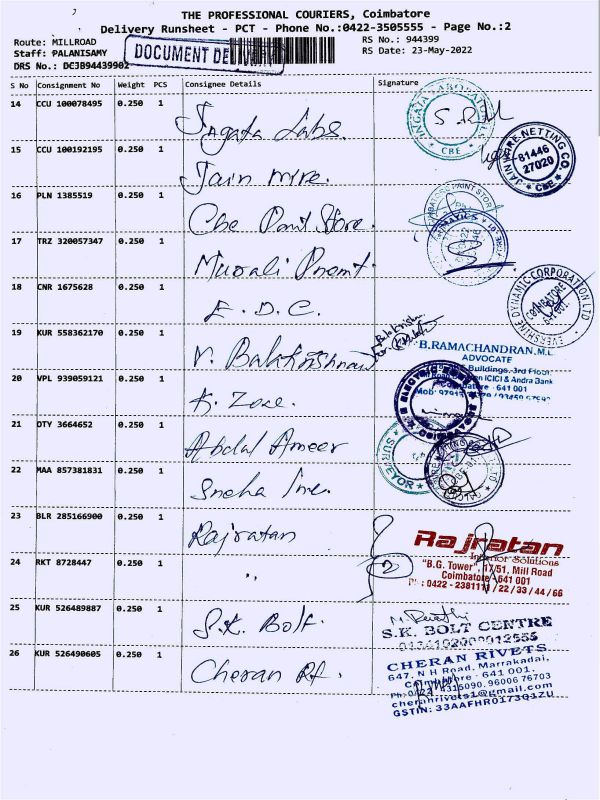 THE PROFESSIONAL COURIERS, Coimbatore
Delivery Runsheet - PCT - Phone No.:0422-3505555 - Page No.:2
Route: MILLROAD RS No.: 944399
Staff: PALANISAMY DOCUMENT DE RS Date: 23-May-2022
DRS No.: DCJB94439902
S No Consignment No Weight PCS Consignee Details Signature
14 CCU 100078495 0.250 1 Ingata Labs. S.R.M
INGATA LABORATORIES CBE
15 CCU 100192195 0.250 1 Jain wire.
JAIN WIRE NETTING CO. 81446 27020 CBE
16 PLN 1385519 0.250 1 Cbe Paint Store.
PAINT STOR
17 TRZ 320057347 0.250 1 Murali
18 CNR 1675628 0.250 1 E.D.C.
EVERSHINE DYNAMIC CORPORATION COIMBATORE
19 KUR 558362170 0.250 1 V. Balakrishnan
B.RAMACHANDRAN,M.L.
ADVOCATE
Buildings, 3rd Floor,
ICICI & Andra Bank
Coimbatore - 641 001
20 VPL 939059121 0.250 1 K. Zone.
ELECTRIC COIMBATORE
21 DTY 3664652 0.250 1 Abdul Ameer
SURVEYOR
22 MAA 857381831 0.250 1 Sneha Inc.
23 BLR 285166900 0.250 1 Rajratan
Rajratan
Interior Solutions
"B.G. Tower", 17/51, Mill Road
Coimbatore - 641 001
Ph : 0422 - 2381111 / 22 / 33 / 44 / 66
24 RKT 8728447 0.250 1 " 2
25 KUR 526489887 0.250 1 S.K. Bolt.
S.K. BOLT CENTRE
26 KUR 526490605 0.250 1 Cheran Rt.
CHERAN RIVETS
647, N H Road, Marrakadai,
Coimbatore - 641 001.
Ph: 0422 - 4315090, 96006 76703
cheranrivets1@gmail.com
GSTIN: 33AAFHR0173Q1ZU